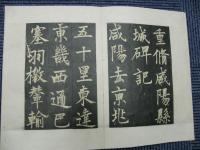 重脩咸陽縣
城碑記
咸陽去京兆
五十里東達
東畿西通巴
塞羽檄輦輸